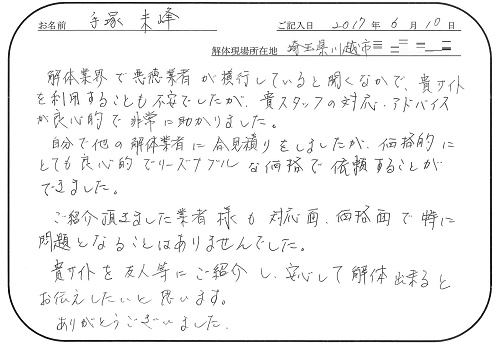 お名前 手塚 未峰 ご記入日 2017 年 6 月 10 日
解体現場所在地 埼玉県川越市
解体業界で悪徳業者が横行していると聞くなかで、貴サイト
を利用することも不安でしたが、貴スタッフの対応・アドバイス
が良心的で非常に助かりました。
自分で他の解体業者に合見積りをしましたが、価格的に
とても良心的でリーズナブルな価格で依頼することが
できました。
ご紹介頂きました業者様も対応面、価格面で特に
問題となることはありませんでした。
貴サイトを友人等にご紹介し、安心して解体出来ると
お伝えしたいと思います。
ありがとうございました。